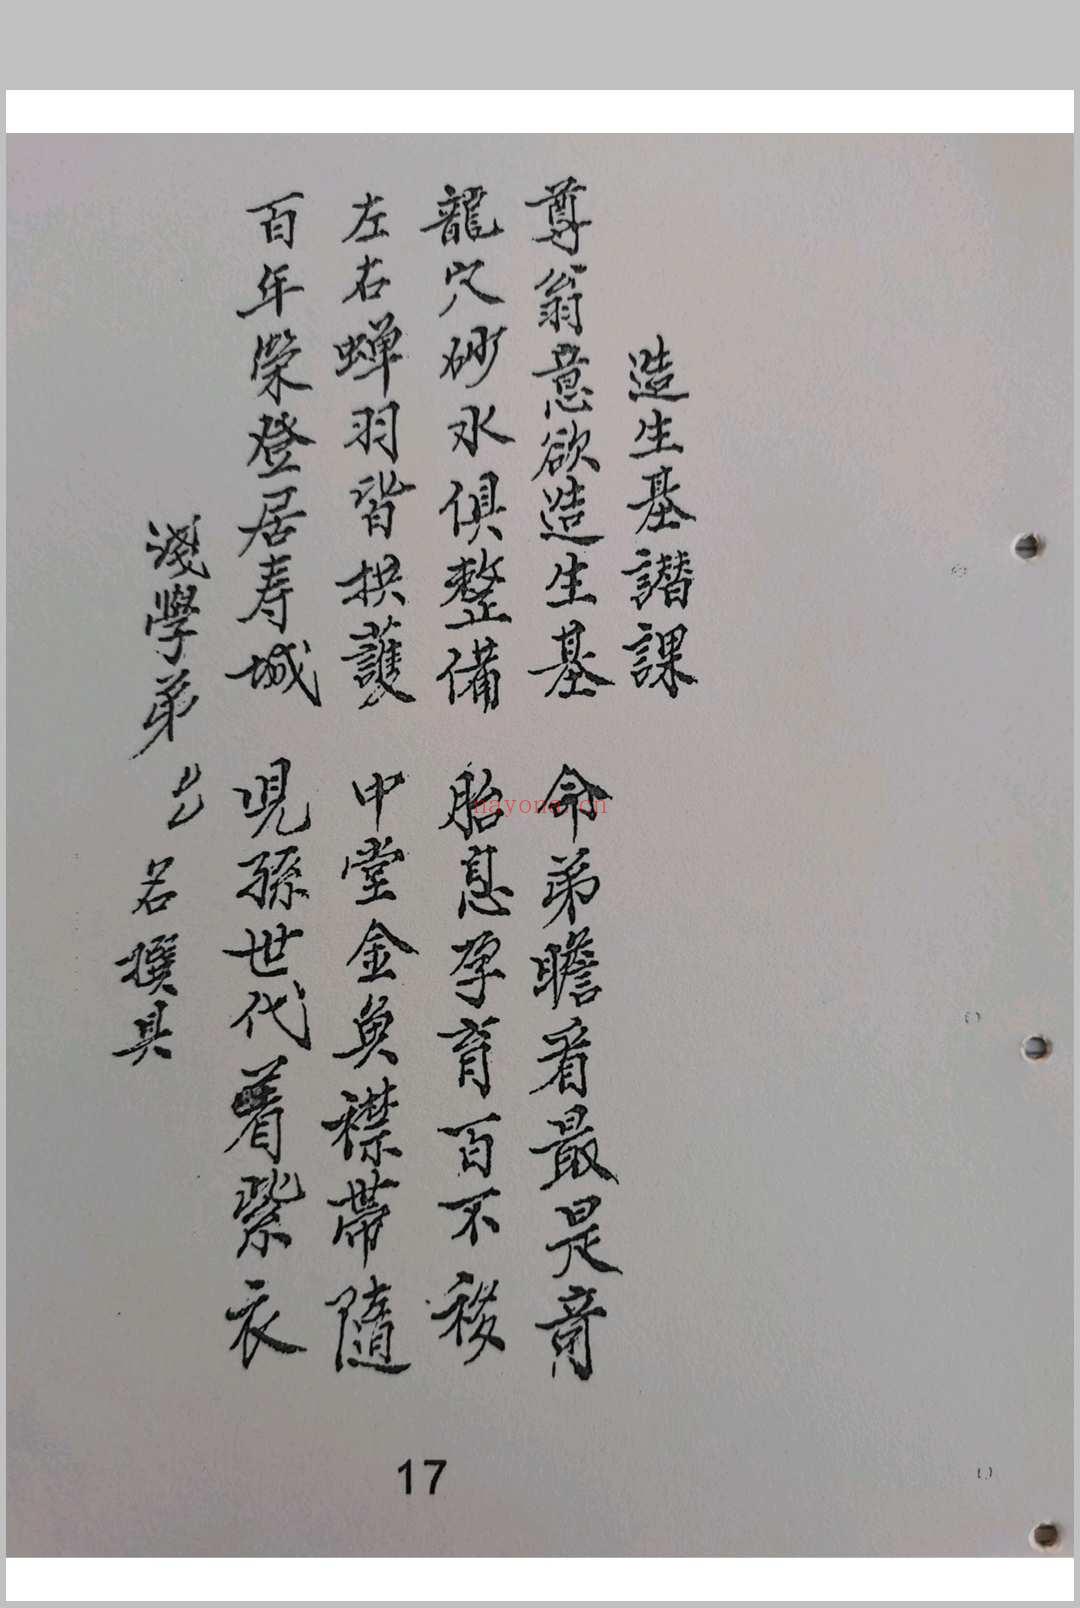 造生基譖課
尊翁意欲造生基 命弟瞻看最是奇
龍穴砂水俱整備 胎息孕育百不移
左右蝉羽皆拱護 中堂金魚襟帶隨
百年榮登居寿城 児孫世代着紫衣
淺學弟 名撰具
17
nayona.cn